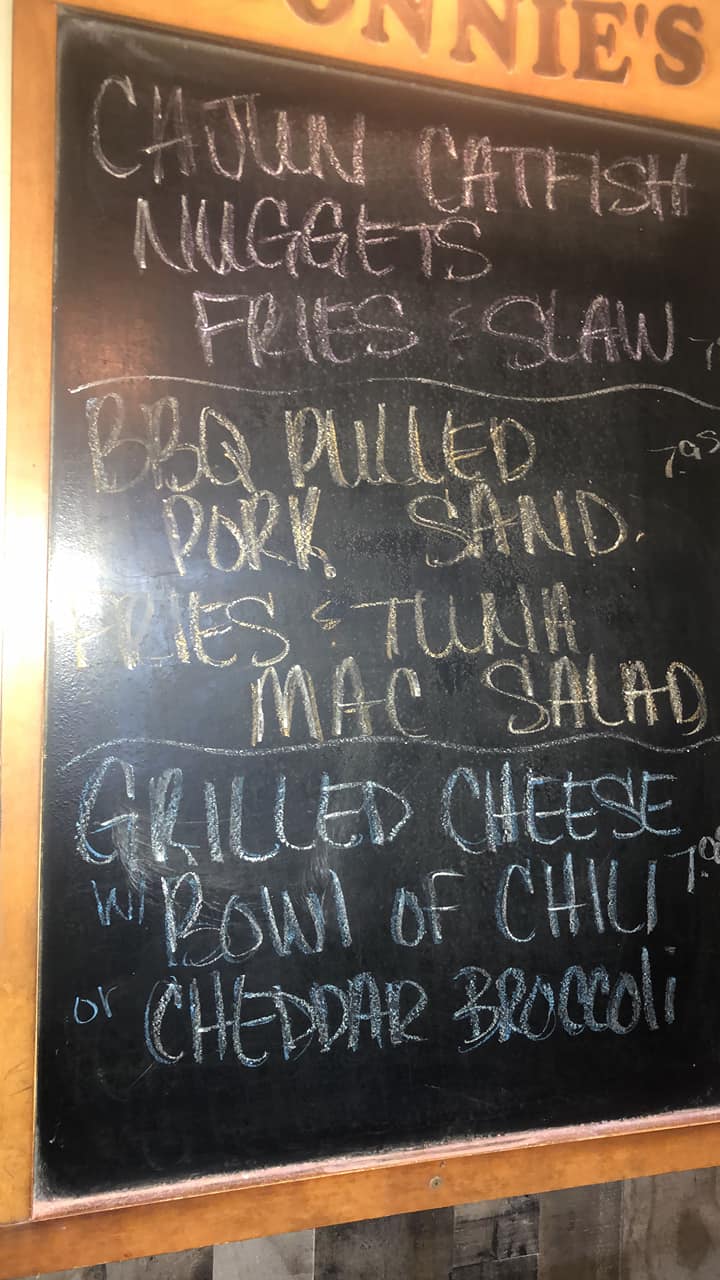 ONNIE'S
CAJUN CATFISH
NUGGETS
FRIES & SLAW 7
BBQ PULLED 7.95
PORK SAND.
FRIES & TUNA
MAC SALAD
GRILLED CHEESE
W/ BOWL OF CHILI 7.9
or CHEDDAR BROCCOLI